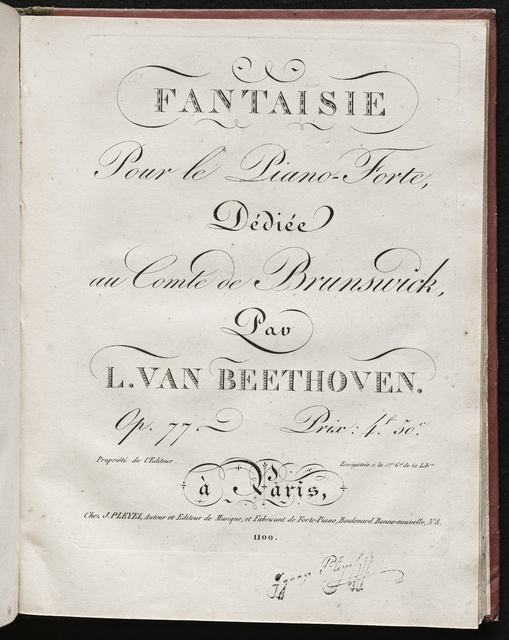 FANTAISIE
Pour le Piano-Forte,
Dédiée
au Comte de Brunswick,
Par
L. VAN BEETHOVEN.
Op. 77 Prix: 4.f 50.c
Propriété de l'Editeur. Enrégistrée à la Don. Gle. de la Lib.rie
à Paris,
Chez J. PLEYEL, Auteur et Editeur de Musique, et Fabricant de Forte-Piano, Boulevard Bonne-nouvelle, N.8.
1100.
Ignace Pleyel